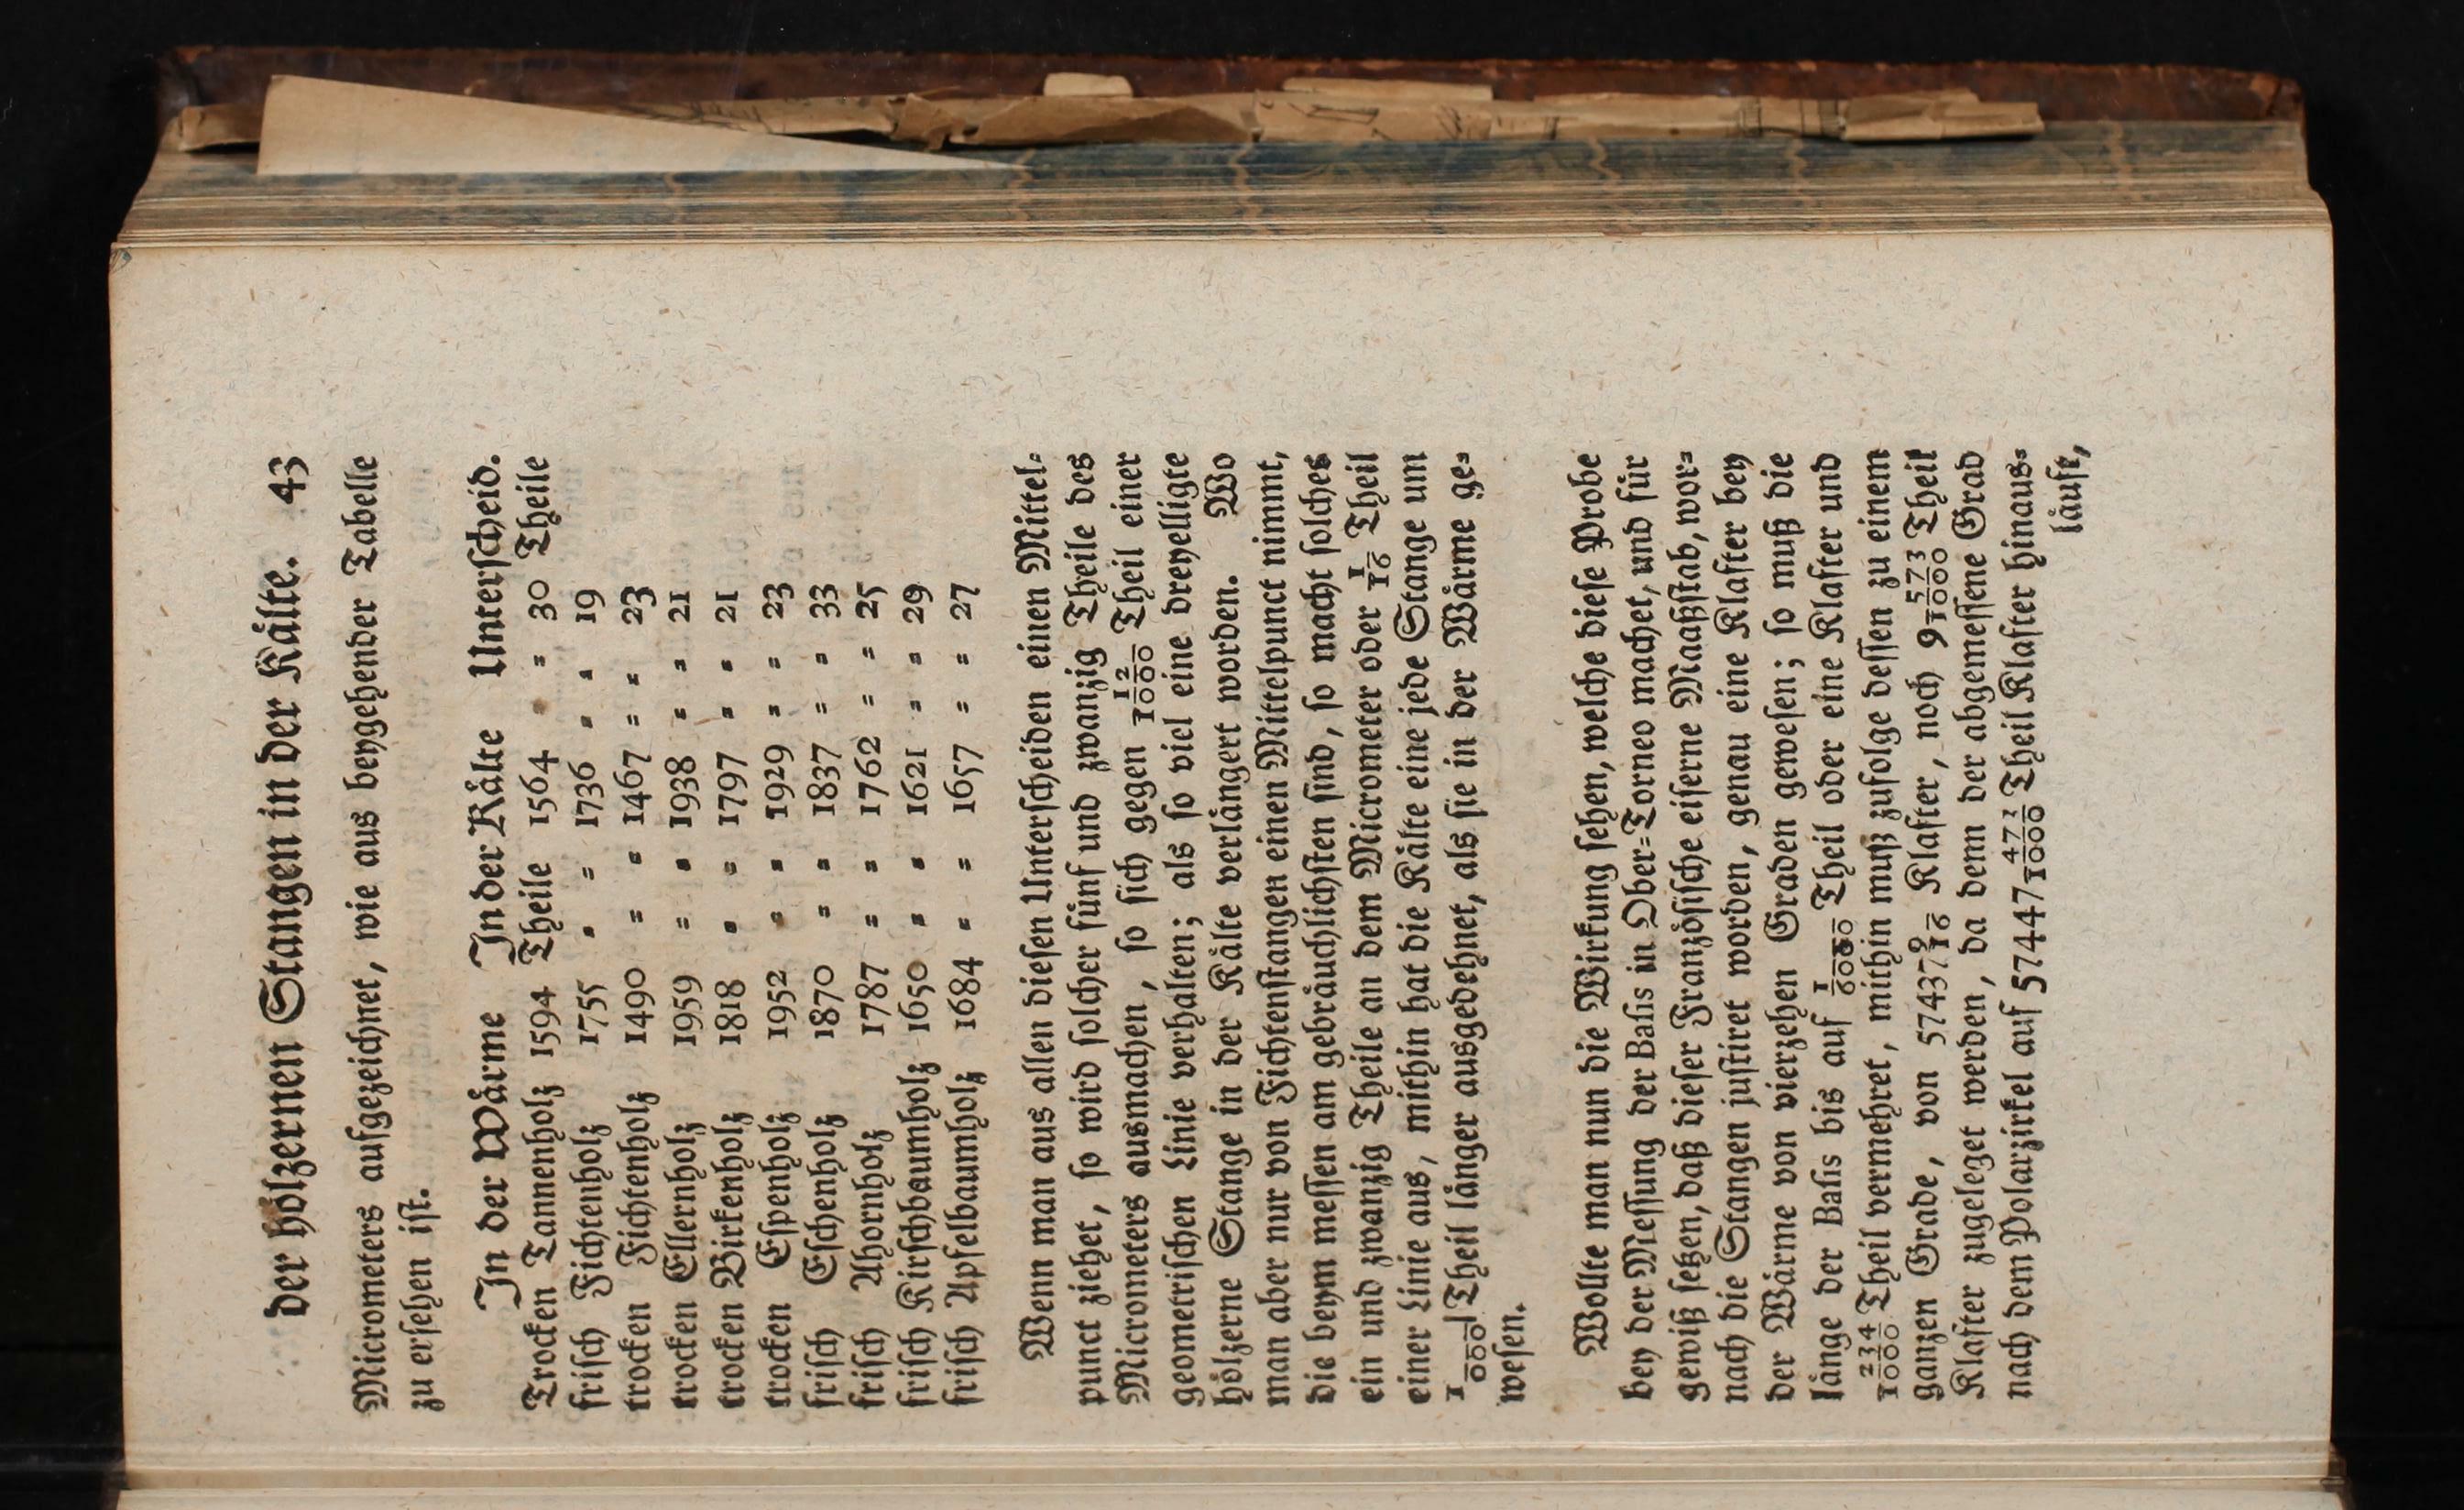 der hölzernen Stangen in der Kälte. 43
Micrometers aufgezeichnet, wie aus beygehender Tabelle
zu ersehen ist.
In der Wärme In der Kälte Unterscheid.
Trocken Tannenholz 1594 Theile 1564 = = 30 Theile
frisch Fichtenholz 1755 = = 1736 = = 19
trocken Fichtenholz 1490 = = 1467 = = 23
trocken Ellernholz 1959 = = 1938 = = 21
trocken Birkenholz 1818 = = 1797 = = 21
trocken Espenholz 1952 = = 1929 = = 23
frisch Eschenholz 1870 = = 1837 = = 33
frisch Ahornholz 1787 = = 1762 = = 25
frisch Kirschbaumholz 1650 = = 1621 = = 29
frisch Apfelbaumholz 1684 = = 1657 = = 27
Wenn man aus allen diesen Unterscheiden einen Mittel=
punct ziehet, so wird solcher fünf und zwanzig Theile des
Micrometers ausmachen, so sich gegen 12/1000 Theil einer
geometrischen Linie verhalten; als so viel eine dreyelligte
hölzerne Stange in der Kälte verlängert worden. Wo
man aber nur von Fichtenstangen einen Mittelpunct nimmt,
die beym messen am gebräuchlichsten sind, so macht solches
ein und zwanzig Theile an dem Micrometer oder 1/16 Theil
einer Linie aus, mithin hat die Kälte eine jede Stange um
1/6000 Theil länger ausgedehnet, als sie in der Wärme ge=
wesen.
Wollte man nun die Wirkung sehen, welche diese Probe
bey der Messung der Basis in Ober=Torneo machet, und für
gewiß setzen, daß dieser Französische eiserne Maaßstab, wor=
nach die Stangen justiret worden, genau eine Klafter bey
der Wärme von vierzehen Graden gewesen; so muß die
länge der Basis bis auf 1/6000 Theil oder eine Klafter und
234/1000 Theil vermehret, mithin muß zufolge dessen zu einem
ganzen Grade, von 57437 9/10 Klafter, noch 9 573/1000 Theil
Klafter zugeleget werden, da denn der abgemessene Grad
nach dem Polarzirkel auf 57447 473/1000 Theil Klafter hinaus=
läuft,